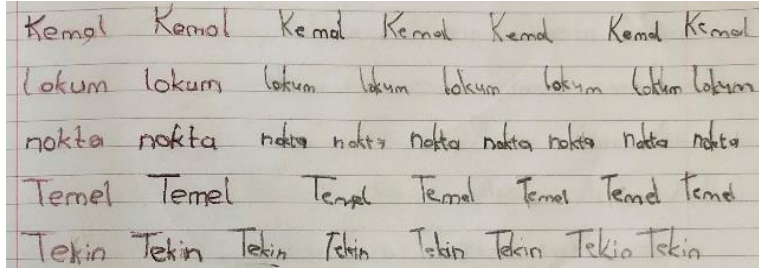 Kemal Kemal Kemal Kemal Kemal Kemal Kemal
lokum lokum lokum lokum lokum lokum lokum lokum
nokta nokta nokta nokta nokta nokta nokta nokta nokta
Temel Temel Temel Temel Temel Temel Temel
Tekin Tekin Tekin Tekin Tekin Tekin Tekin Tekin